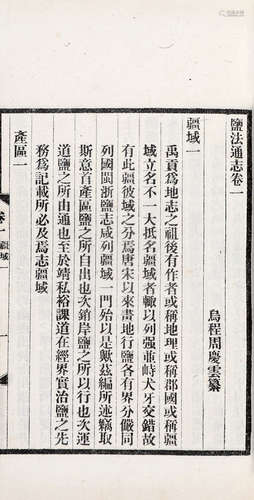 鹽法通志卷一
烏程周慶雲纂
疆域一
禹貢爲地志之祖後有作者或稱地理或稱郡國或稱疆
域立名不一大抵名疆域者輒以列强並峙犬牙交錯故
有此疆彼域之分焉唐宋以來畫地行鹽各有界分儼同
列國閩浙鹽志咸列疆域一門始以是歟茲編所述竊取
斯意首產區鹽之所自出也次銷岸鹽之所以行也次運
道鹽之所由通也至於靖私裕課道在經界實治鹽之先
務爲記載所必及焉志疆域
產區一
卷一 疆域